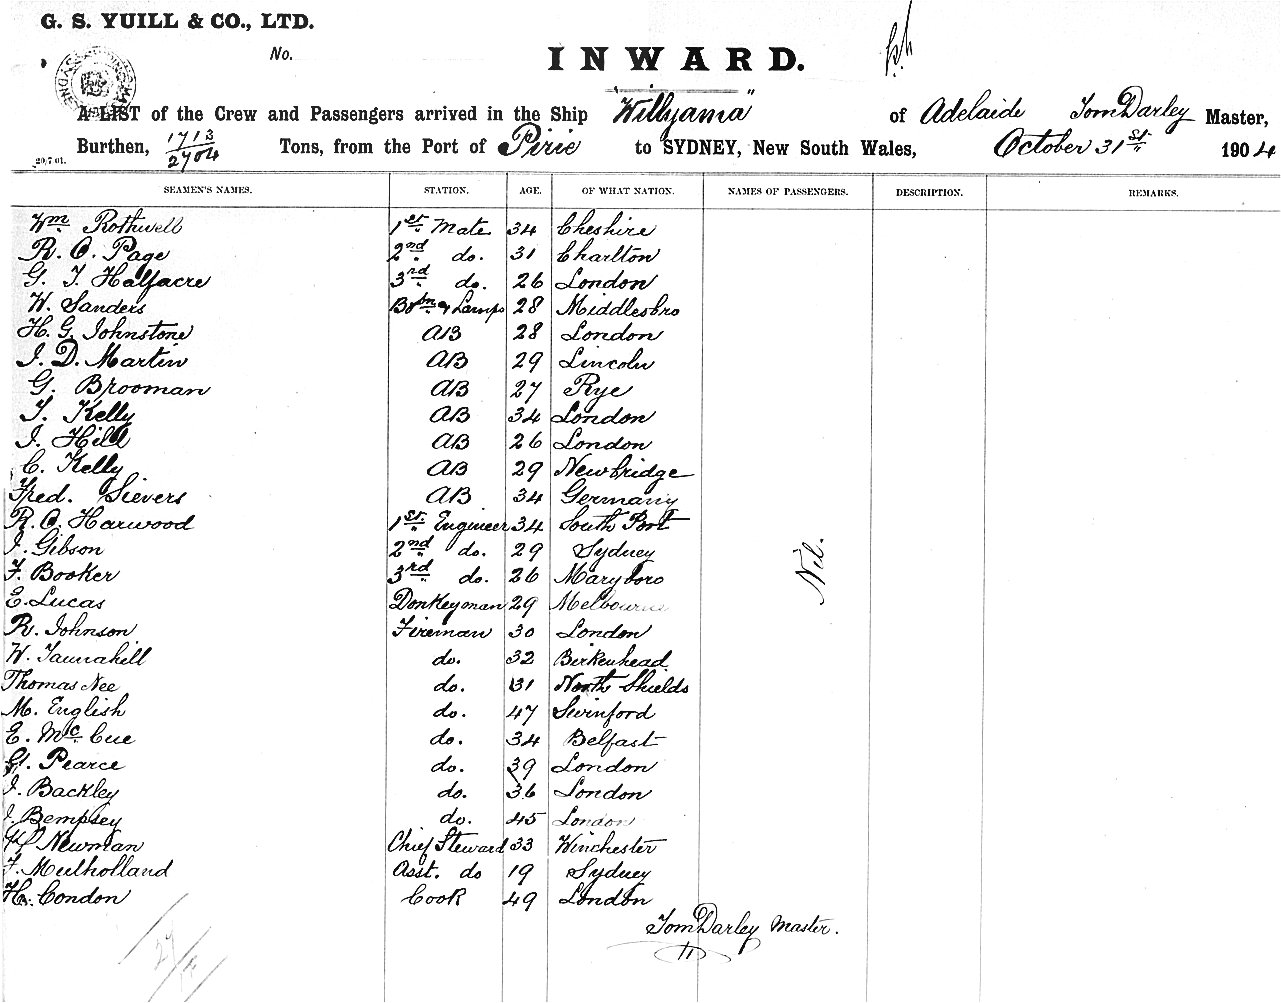 G. S. YUILL & CO., LTD.
No.
INWARD.
A LIST of the Crew and Passengers arrived in the Ship "Willyama" of Adelaide Tom Darley Master,
Burthen, 1713/2704 Tons, from the Port of Pirie to SYDNEY, New South Wales, October 31st 1904
20/7 01.
SEAMEN'S NAMES. STATION. AGE. OF WHAT NATION. NAMES OF PASSENGERS. DESCRIPTION. REMARKS.
Wm Rothwell 1st Mate 34 Cheshire
R. C. Page 2nd do. 31 Charlton
G. T. Halfacre 3rd do. 26 London
W. Sanders Bosn & Lamps 28 Middlesbro
H. G. Johnstone AB 28 London
J. D. Martin AB 29 Lincoln
G. Brooman AB 27 Rye
T. Kelly AB 34 London
J. Hill AB 26 London
C. Kelly AB 29 Newbridge
Fred. Sievers AB 34 Germany
R. C. Harwood 1st Engineer 34 South Port
J. Gibson 2nd do. 29 Sydney
F. Booker 3rd do. 26 Maryboro
E. Lucas Donkeyman 29 Melbourne
R. Johnson Fireman 30 London
W. Taunahill do. 32 Birkenhead
Thomas Nee do. 31 North Shields
M. English do. 47 Swinford
E. McCue do. 34 Belfast
G. Pearce do. 39 London
J. Backley do. 36 London
J. Bempsey do. 45 London
Newman Chief Steward 33 Winchester
F. Mulholland Asst. do 19 Sydney
H. Condon Cook 49 London
Nil.
Tom Darley Master.